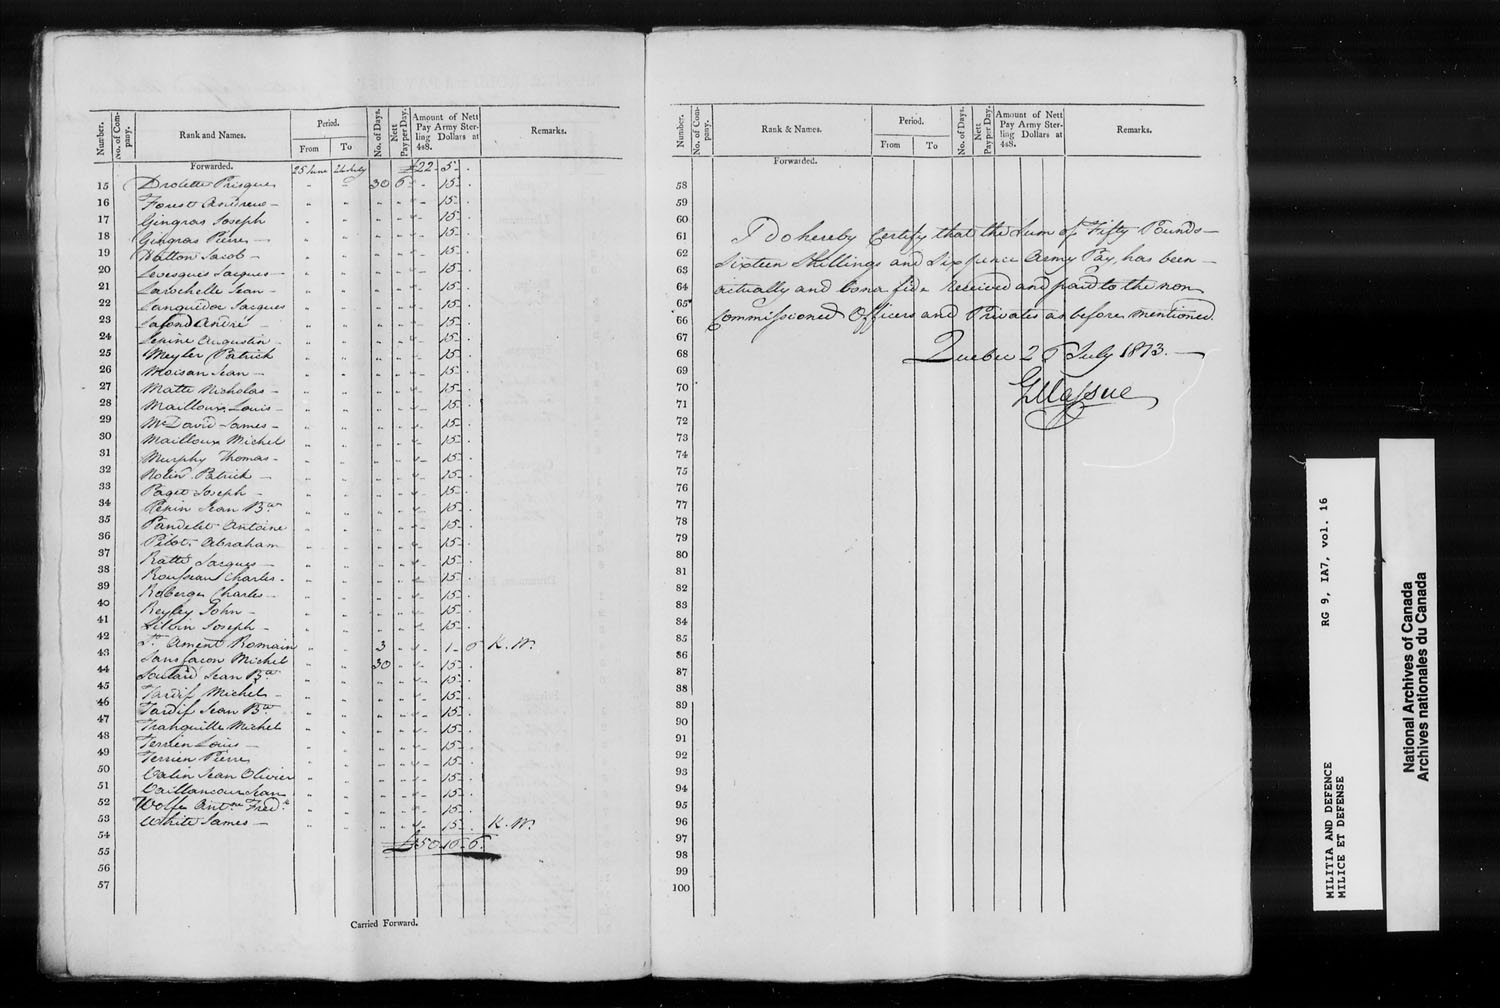 Number. | No. of Company. | Rank and Names. | Period. From | To | No. of Days. | Nett Pay per Day. | Amount of Nett Pay Army Sterling Dollars at 4s8. | Remarks.
Forwarded. | 25 June | 24 July | | | £22 - 5 -
15 Drolette Prisque " " 30 6 " 15 -
16 Forest Andrew - " " " " " 15 -
17 Gingras Joseph " " " " " 15 -
18 Gingras Pierre - " " " " " 15 -
19 Hatton Jacob - " " " " " 15 -
20 Levesques Jacques - " " " " " 15 -
21 Larochelle Jean - " " " " " 15 -
22 Languedoc Jacques " " " " " 15 -
23 Lafond André - " " " " " 15 -
24 Lepine Augustin - " " " " " 15 -
25 Meyler Patrick " " " " " 15 -
26 Moisan Jean - " " " " " 15 -
27 Matte Nicholas - " " " " " 15 -
28 Mailloux Louis - " " " " " 15 -
29 McDavid James - " " " " " 15 -
30 Mailloux Michel " " " " " 15 -
31 Murphy Thomas - " " " " " 15 -
32 Nolin Patrick - " " " " " 15 -
33 Paget Joseph - " " " " " 15 -
34 Pepin Jean Bte " " " " " 15 -
35 Pandelet Antoine " " " " " 15 -
36 Pilot Abraham " " " " " 15 -
37 Ratté Jacques - " " " " " 15 -
38 Rousseau Charles - " " " " " 15 -
39 Roberge Charles - " " " " " 15 -
40 Reyley John - " " " " " 15 -
41 Silvin Joseph - " " " " " 15 -
42 St. Ament Romain " " 3 " " 1 - 6 K. W.
43 Sansfacon Michel " " 30 " " 15 -
44 Soulard Jean Bte " " " " " 15 -
45 Tardif Michel - " " " " " 15 -
46 Tardif Jean Bte " " " " " 15 -
47 Tranquille Michel " " " " " 15 -
48 Terrien Louis - " " " " " 15 -
49 Terrien Pierre " " " " " 15 -
50 Valin Jean Olivier " " " " " 15 -
51 Vaillancour Jean " " " " " 15 -
52 Wolfe Antne Fredk " " " " " 15 -
53 White James - " " " " " 15 - K. W.
54 £50 - 16 - 6
55
56
57
Carried Forward.
Number. | No. of Company. | Rank & Names. | Period. From | To | No. of Days. | Nett Pay per Day. | Amount of Nett Pay Army Sterling Dollars at 4s8. | Remarks.
Forwarded.
58
59
60
61 I do hereby Certify that the Sum of Fifty Pounds -
62 Sixteen Shillings and Six pence Army Pay, has been -
63
64 actually and bona fide received and paid to the non
65
66 Commissioned Officers and Privates as before mentioned.
67
68 Quebec 26 July 1813. -
69
70 G Massue
71
72
73
74
75
76
77
78
79
80
81
82
83
84
85
86
87
88
89
90
91
92
93
94
95
96
97
98
99
100
MILITIA AND DEFENCE RG 9, IA7, vol. 16
MILICE ET DEFENSE
National Archives of Canada
Archives nationales du Canada